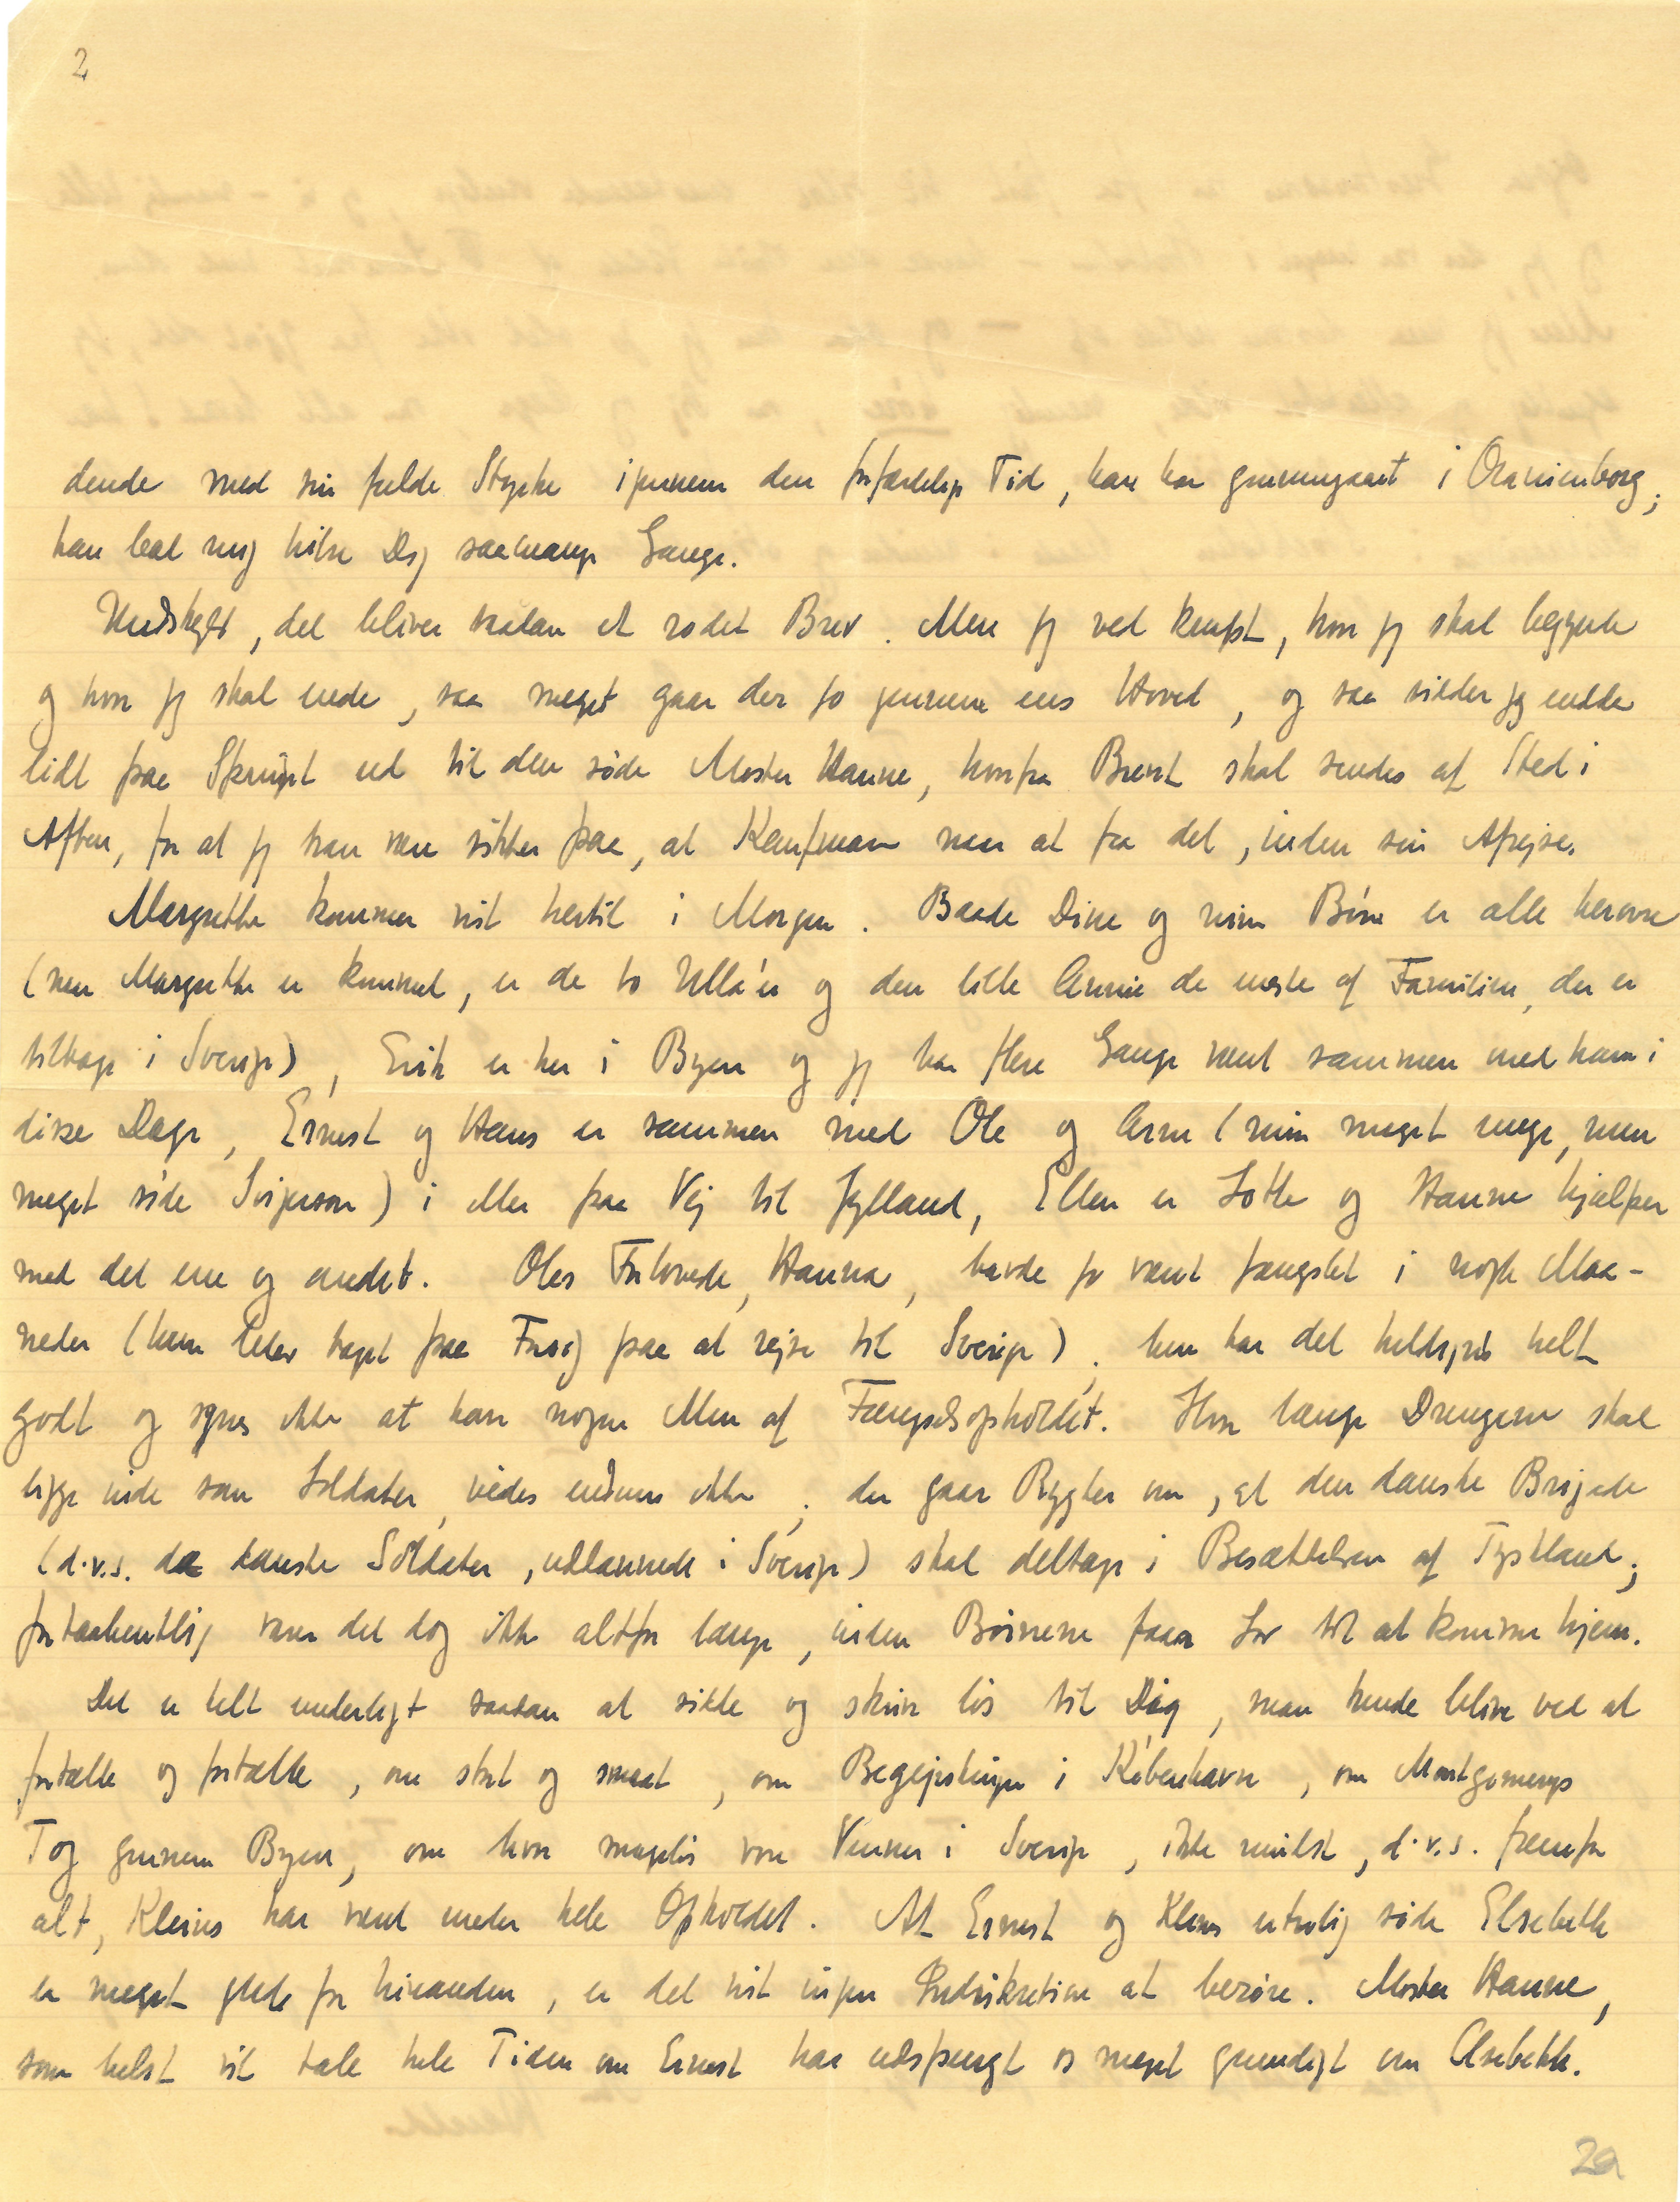 2
dende med sin fulde Styrke igennem den forfærdelige Tid, han har gennemgaaet i Oranienborg;
han bad mig hilse Dig saamange Gange.
Undskyld, det bliver saadan et rodet Brev. Men jeg ved knapt, hvor jeg skal begynde
og hvor jeg skal ende, saa meget gaar der jo gennem ens Hoved, og saa sidder jeg endda
lidt paa Spring ud til den søde Moster Hanne, hvorfra Brevet skal sendes af Sted i
Aften, for at jeg kan være sikker paa, at Kaufmann naar at faa det, inden sin Afrejse.
Margrethe kommer vist hertil i Morgen. Baade Dine og mine Børn er alle herovre
(naar Margrethe er kommet, er de to Ulla'er og den lille Annie de eneste af Familien, der er
tilbage i Sverige), Erik er her i Byen og jeg har flere Gange været sammen med ham i
disse Dage, Ernest og Hans er sammen med Ole og Arne (min meget unge, men
meget søde Svigersøn) i eller paa Vej til Jylland, Ellen er Lotte og Hanne hjælper
med det ene og andet. Oles Forlovede, Hanna, havde jo været fængslet i nogle Maa-
neder (hun blev taget paa Forsøg paa at rejse til Sverige); hun har det heldigvis helt
godt og synes ikke at have nogen Men af Fængselsopholdet. Hvor længe Drengene skal
ligge inde som Soldater, vides endnu ikke; der gaar Rygter om, at den danske Brigade
(d.v.s. de danske Soldater, uddannede i Sverige) skal deltage i Besættelsen af Tyskland;
forhaabentlig varer det dog ikke altfor længe, inden Børnene faar Lov til at komme hjem.
Det er helt underligt saadan at sidde og skrive løs til Dig, man kunde blive ved at
fortælle og fortælle, om stort og smaat, om Begejstringen i København, om Montgomerys
Tog gennem Byen, om hvor mageløs vore Venner i Sverige, ikke mindst, d.v.s. fremfor
alt, Kleins har været under hele Opholdet. At Ernest og Kleins utrolig søde Elsebeth
er meget glade for hinanden, er det vist ingen Indiskretion at berøre. Moster Hanne,
som helst vil tale hele Tiden om Ernest har udspurgt os meget grundigt om Elsebeth.
2a